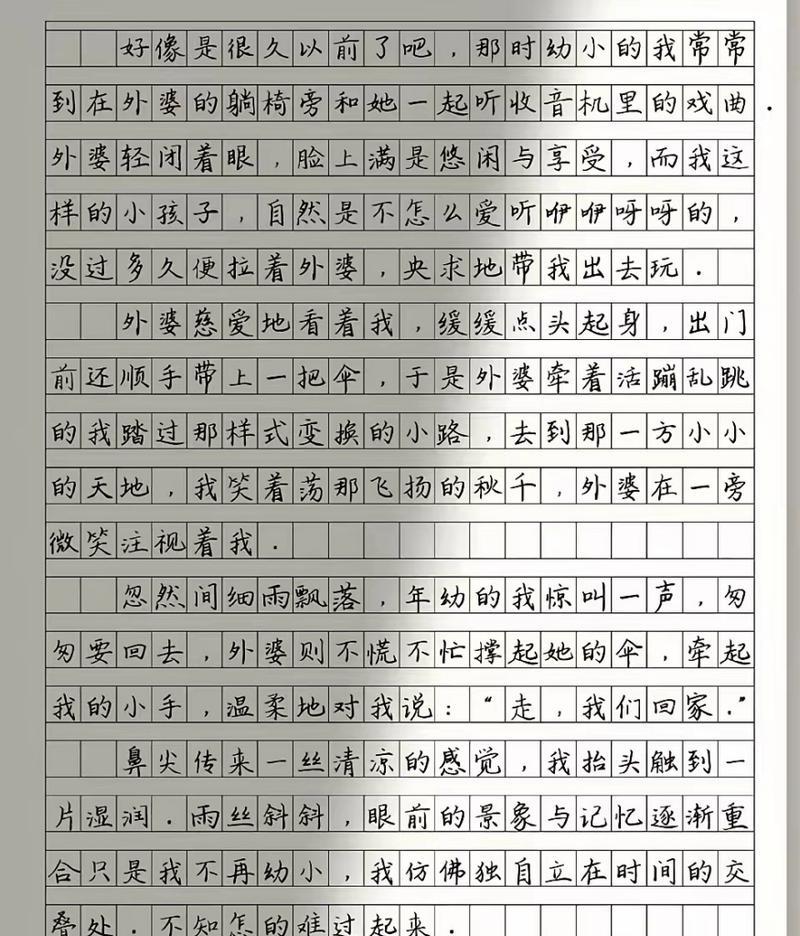 好像是很久以前了吧，那时幼小的我常常
到在外婆的躺椅旁和她一起听收音机里的戏曲．
外婆轻闭着眼，脸上满是悠闲与享受，而我这
样的小孩子，自然是不怎么爱听咿咿呀呀的，
没过多久便拉着外婆，央求地带我出去玩．
外婆慈爱地看着我，缓缓点头起身，出门
前还顺手带上一把伞，于是外婆牵着活蹦乱跳
的我踏过那样式变换的小路，去到那一方小小
的天地，我笑着荡那飞扬的秋千，外婆在一旁
微笑注视着我．
忽然间细雨飘落，年幼的我惊叫一声，匆
匆要回去，外婆则不慌不忙撑起她的伞，牵起
我的小手，温柔地对我说：“走，我们回家．”
鼻尖传来一丝清凉的感觉，我抬头触到一
片湿润．雨丝斜斜，眼前的景象与记忆逐渐重
合只是我不再幼小，我仿佛独自立在时间的交
叠处．不知怎的难过起来．